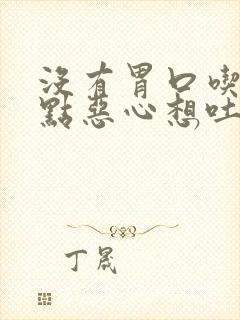 沒有胃口喫
點惡心想吐
丁晟